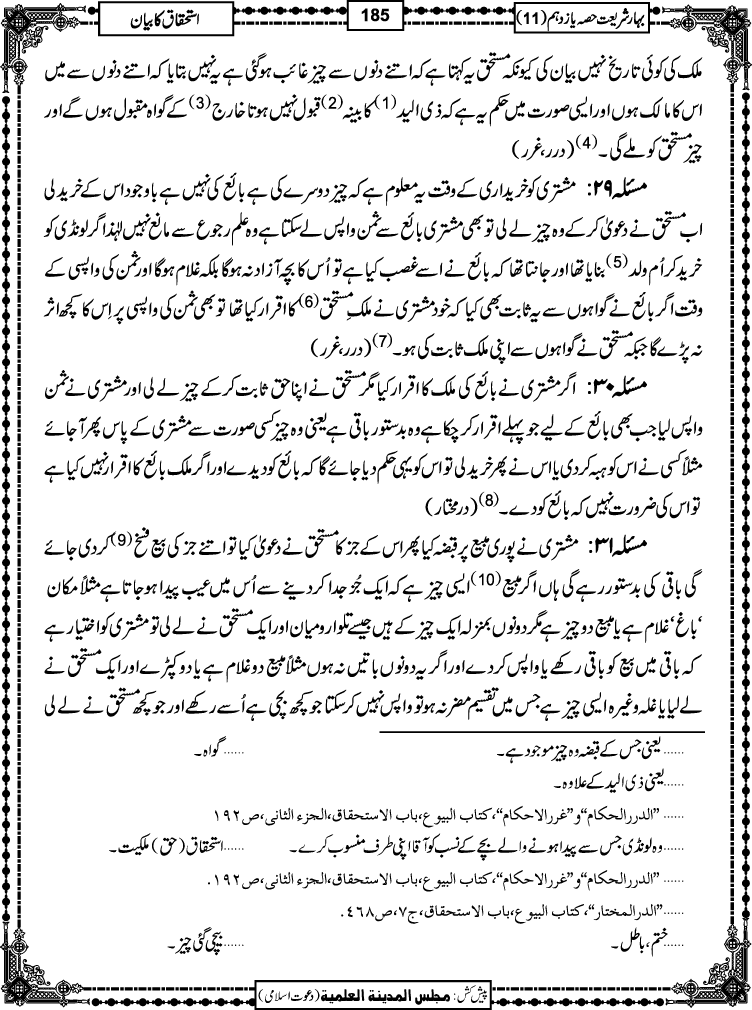 بہار شریعت حصہ یازدہم (11)
185
استحقاق کا بیان
ملک کی کوئی تاریخ نہیں بیان کی کیونکہ مستحق یہ کہتا ہے کہ اتنے دنوں سے چیز غائب ہوگئی ہے یہ نہیں بتایا کہ اتنے دنوں سے میں
اس کا مالک ہوں اور ایسی صورت میں حکم یہ ہے کہ ذی الید(1) کا بینہ(2) قبول نہیں ہوتا خارج(3) کے گواہ مقبول ہوں گے اور
چیز مستحق کو ملے گی۔(4) (درر، غرر)
مسئلہ ۲۹: مشتری کو خریداری کے وقت یہ معلوم ہے کہ چیز دوسرے کی ہے بائع کی نہیں ہے باوجود اس کے خرید لی
اب مستحق نے دعویٰ کر کے وہ چیز لے لی تو بھی مشتری بائع سے ثمن واپس لے سکتا ہے وہ علم رجوع سے مانع نہیں لہٰذا اگر لونڈی کو
خرید کر اُم ولد(5) بنایا تھا اور جانتا تھا کہ بائع نے اسے غصب کیا ہے تو اُس کا بچہ آزاد نہ ہوگا بلکہ غلام ہوگا اور ثمن کی واپسی کے
وقت اگر بائع نے گواہوں سے یہ ثابت بھی کیا کہ خود مشتری نے ملکِ مستحق(6) کا اقرار کیا تھا تو بھی ثمن کی واپسی پر اِس کا کچھ اثر
نہ پڑے گا جبکہ مستحق نے گواہوں سے اپنی ملک ثابت کی ہو۔(7) (درر، غرر)
مسئلہ ۳۰: اگر مشتری نے بائع کی ملک کا اقرار کیا مگر مستحق نے اپنا حق ثابت کر کے چیز لے لی اور مشتری نے ثمن
واپس لیا جب بھی بائع کے لیے جو پہلے اقرار کر چکا ہے وہ بدستور باقی ہے یعنی وہ چیز کسی صورت سے مشتری کے پاس پھر آجائے
مثلاً کسی نے اس کو ہبہ کردی یا اس نے پھر خرید لی تو اس کو یہی حکم دیا جائے گا کہ بائع کو دیدے اور اگر ملک بائع کا اقرار نہیں کیا ہے
تو اس کی ضرورت نہیں کہ بائع کو دے۔(8) (درمختار)
مسئلہ ۳۱: مشتری نے پوری مبیع پر قبضہ کیا پھر اس کے جز کا مستحق نے دعویٰ کیا تو اتنے جز کی بیع فسخ(9) کر دی جائے
گی باقی کی بدستور رہے گی ہاں اگر مبیع(10) ایسی چیز ہے کہ ایک جُز جدا کر دینے سے اُس میں عیب پیدا ہو جاتا ہے مثلاً مکان
‘باغ‘ غلام ہے یا مبیع دو چیز ہے مگر دونوں بمنزلہ ایک چیز کے ہیں جیسے تلوار و میان اور ایک مستحق نے لے لی تو مشتری کو اختیار ہے
کہ باقی میں بیع کو باقی رکھے یا واپس کر دے اور اگر یہ دونوں باتیں نہ ہوں مثلاً مبیع دو غلام ہے یا دو کپڑے اور ایک مستحق نے
لے لیا یا غلہ وغیرہ ایسی چیز ہے جس میں تقسیم مضر نہ ہو تو واپس نہیں کر سکتا جو کچھ بچی ہے اُسے رکھے اور جو کچھ مستحق نے لے لی
......یعنی جس کے قبضہ وہ چیز موجود ہے۔ ......گواہ۔
......یعنی ذی الید کے علاوہ۔
...... ”الدرر الحکام“ و ”غرر الاحکام“، کتاب البیوع، باب الاستحقاق، الجزء الثانی، ص ۱۹۲
......وہ لونڈی جس سے پیدا ہونے والے بچے کے نسب کو آقا اپنی طرف منسوب کرے۔ ......استحقاق (حق) ملکیت۔
...... ”الدرر الحکام“ و ”غرر الاحکام“، کتاب البیوع، باب الاستحقاق، الجزء الثانی، ص ۱۹۲.
......”الدر المختار“، کتاب البیوع، باب الاستحقاق، ج۷، ص ٤٦٨.
......ختم، باطل۔ ......بیچی گئی چیز۔
پیش کش: مجلس المدینۃ العلمیۃ (دعوت اسلامی)